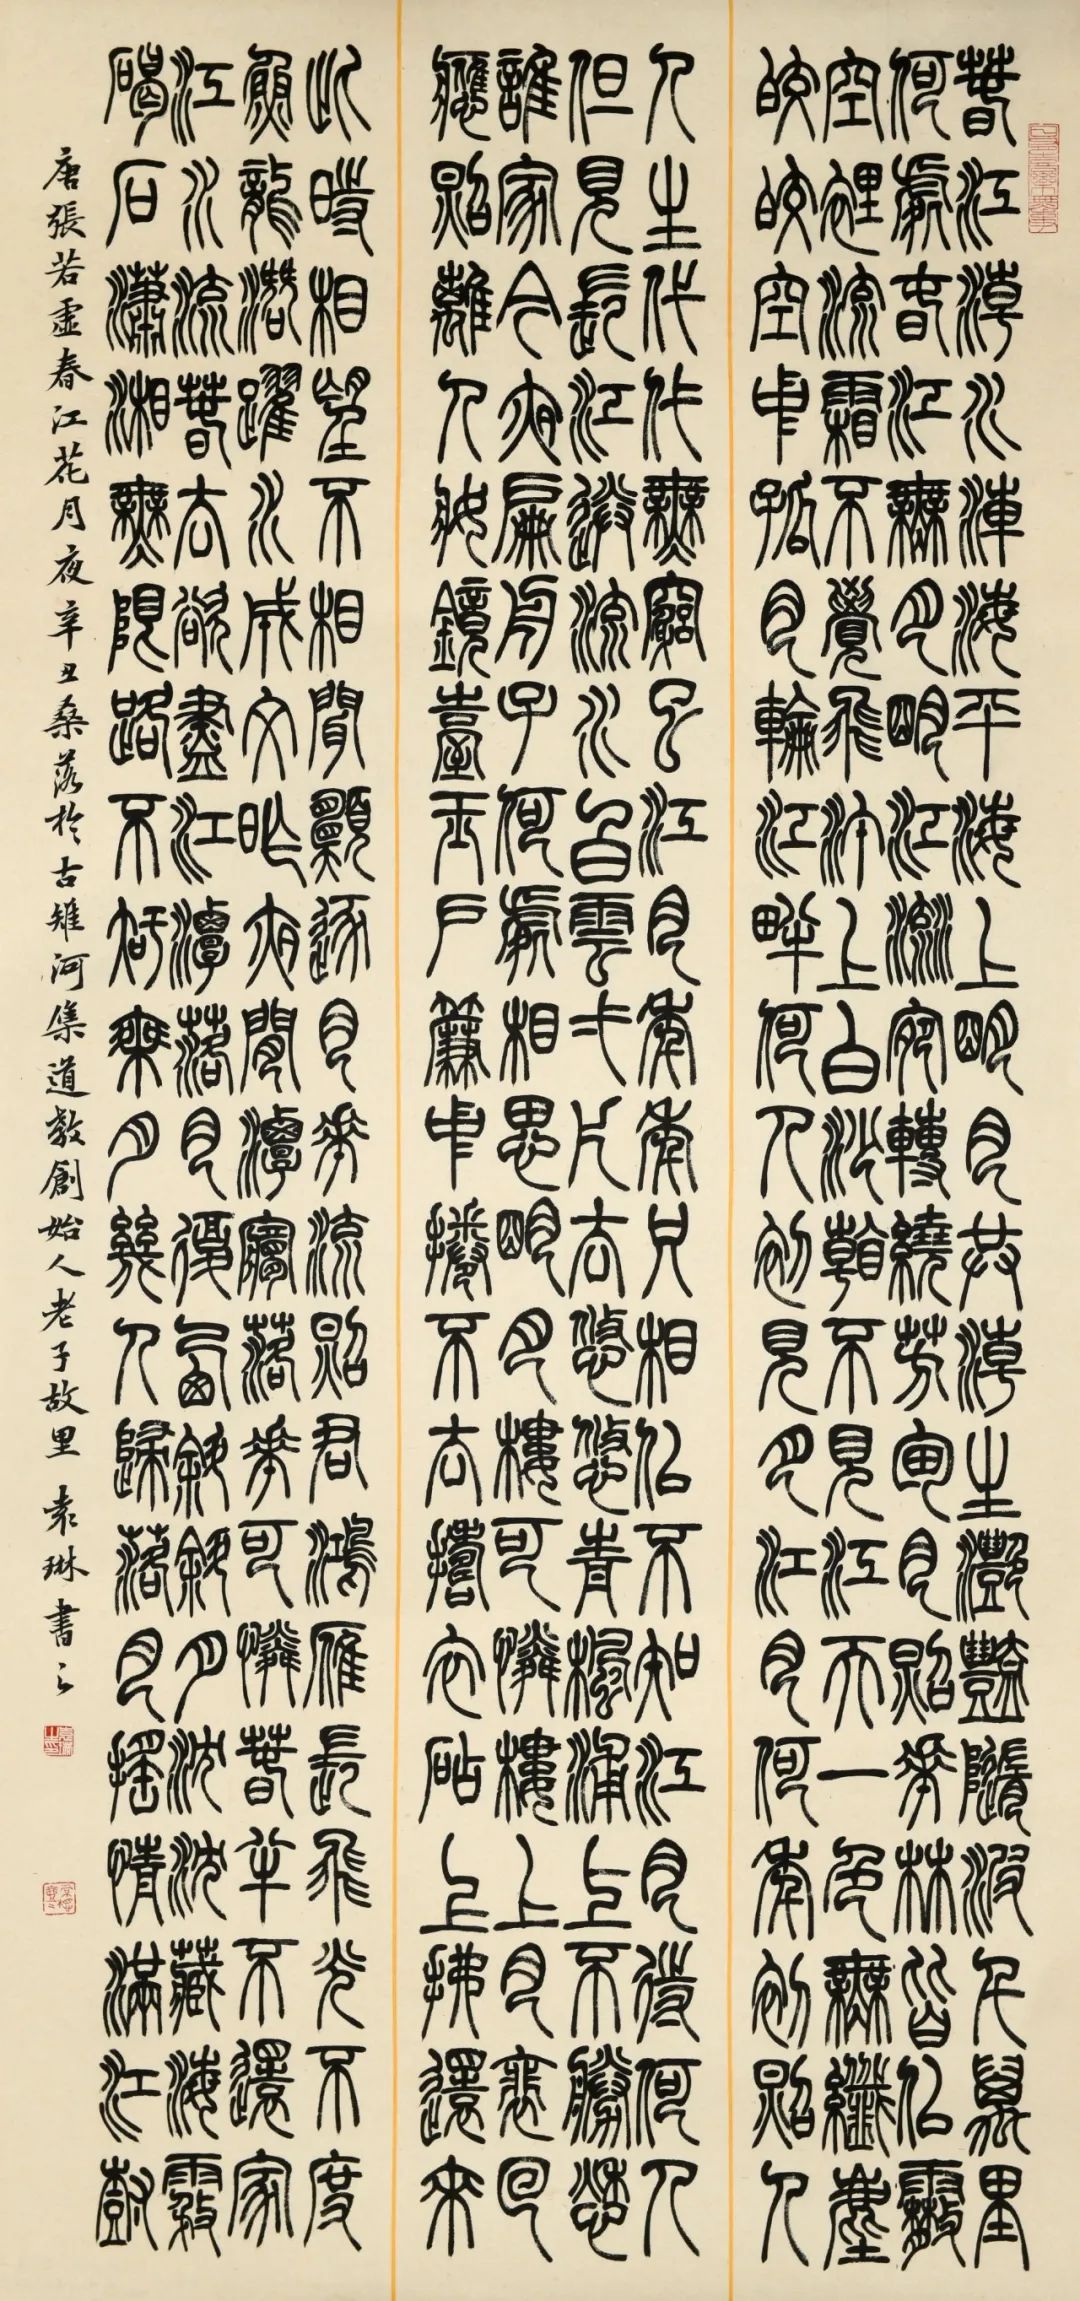 春江潮水連海平海上明月共潮生灩灩隨波千萬里
何處春江無月明江流宛轉繞芳甸月照花林皆似霰
空裏流霜不覺飛汀上白沙看不見江天一色無纖塵
皎皎空中孤月輪江畔何人初見月江月何年初照人
人生代代無窮已江月年年只相似不知江月待何人
但見長江送流水白雲一片去悠悠青楓浦上不勝愁
誰家今夜扁舟子何處相思明月樓可憐樓上月裵回
應照離人妝鏡臺玉戶簾中捲不去擣衣砧上拂還來
此時相望不相聞願逐月華流照君鴻雁長飛光不度
魚龍潛躍水成文昨夜閒潭夢落花可憐春半不還家
江水流春去欲盡江潭落月復西斜斜月沈沈藏海霧
碣石瀟湘無限路不知乘月幾人歸落月搖情滿江樹
唐張若虛春江花月夜辛丑桑落於古雉河集道教創始人老子故里袁琳書之